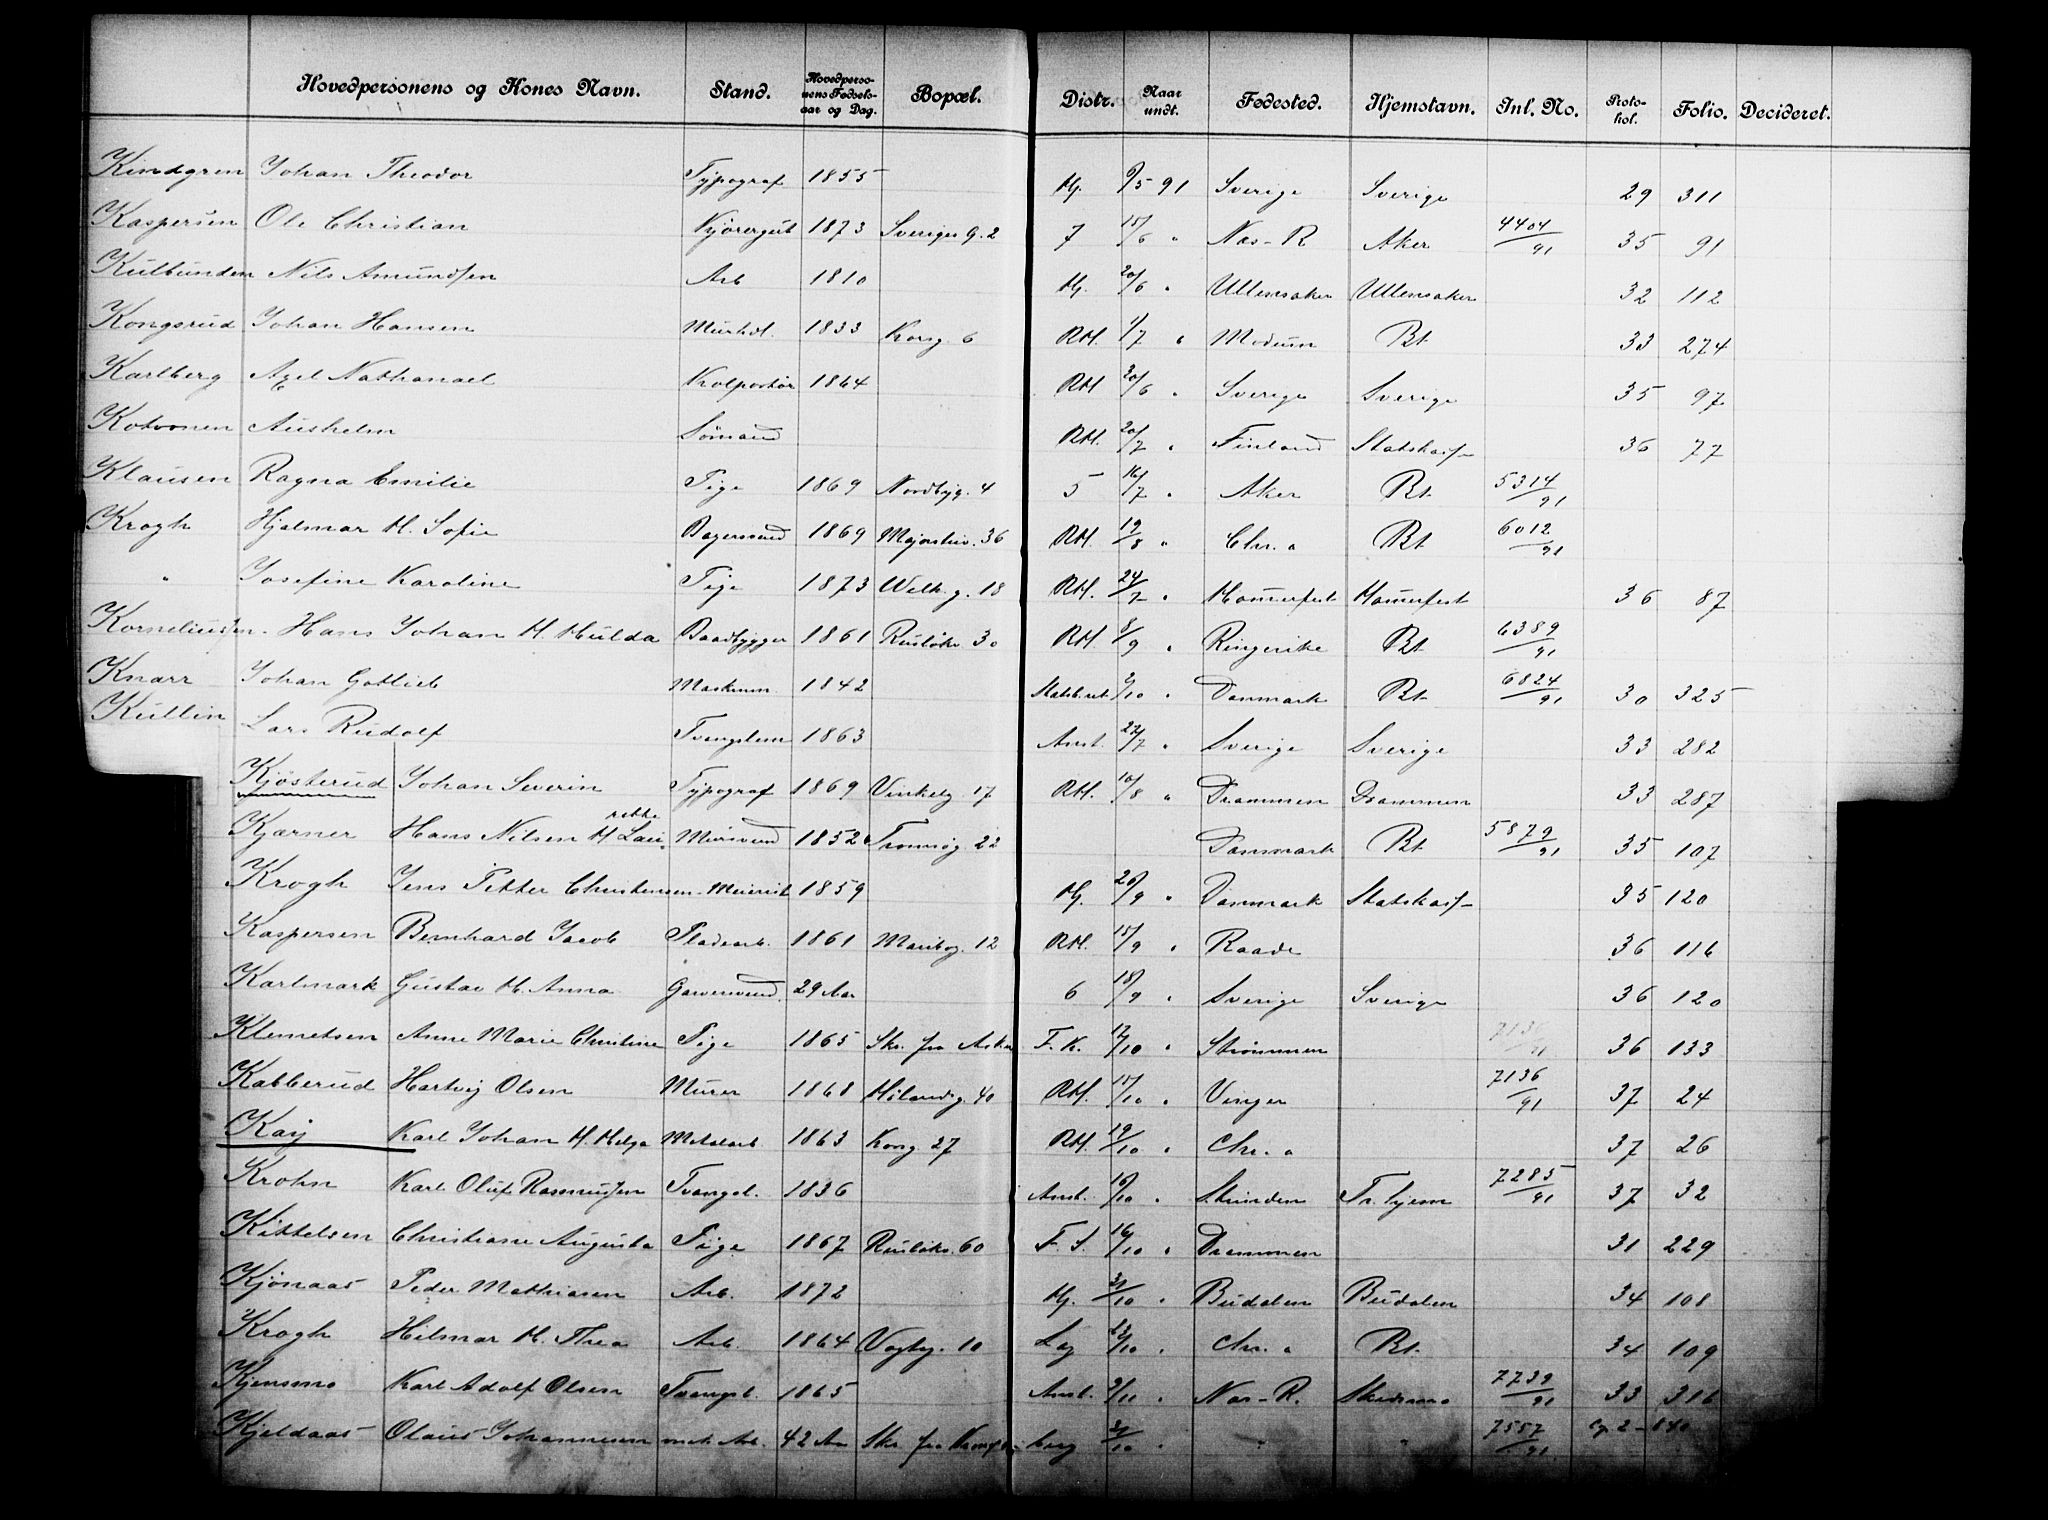 Hovedpersonens og Kones Navn. Stand. Hovedpersonens Fødselsaar og Dag. Bopæl. Distr. Naar undt. Fødested. Hjemstavn. Inl. No. Protokol. Folio. Decideret.
Kindgren Johan Theodor Typograf 1855 Hj. 9/5 91 Sverige Sverige 29 311
Kaspersen Ole Christian Kjøregut 1873 Sveriges g. 2 7 15/6 " Næs-R Aker 4404/91 35 91
Kulbunden Nils Amundsen Arb 1810 Hj. 20/6 " Ullensaker Ullensaker 32 112
Kongsrud Johan Hansen Murhdl. 1833 Korsg 6 RM. 1/7 " Modum Bt 33 274
Karlberg Axel Nathanael Kolportør 1864 RM 20/6 " Sverige Sverige 35 97
Kotvonen Sømand RM. 20/7 " Finland Statskass 36 77
Klausen Ragna Emilie Pige 1869 Nordbyg. 4 5 16/7 " Aker Bt 5314/91
Krogh Hjalmar M. Sofie Bagersvend 1869 Majorstuv. 36 RM. 19/8 " Chr.a Bt 6012/91
" Josefine Karoline Pige 1873 Welh. g. 18 RM. 24/7 " Hamerfest Hamerfest 36 87
Korneliussen Hans Johan M. Hulda Baadbygger 1861 Ruseløkv 30 RM. 8/9 " Ringerike Bt 6389/91
Knarr Johan Gotlieb Maskinm 1842 2/10 " Danmark Bt 6824/91 30 325
Kullin Lars Rudolf Tvangslem 1863 Anst. 22/7 " Sverige Sverige 33 282
Kjøsterud Johan Severin Typograf 1869 Vinkelg 17 RM. 10/8 " Drammen Drammen 33 287
Kjærner Hans Nilsen M. Murersvend 1852 Tromsøg 22 Danmark Bt 5879/91 35 107
Krogh Jens Petter Christensen Meierist 1859 Hj. 26/9 " Danmark Statskass 35 120
Kaspersen Bernhard Jacob Pladearb. 1861 Maribog. 12 RM. 15/9 " Raade 36 116
Karlmark Gustav M. Anna Garversvend 29 Aar 6 18/9 " Sverige Sverige 36 120
Klemetsen Anne Marie Christine Pige 1865 Skr. fra Asker F. K. 12/10 " Strømmen 36 133
Kabberud Hartvig Olsen Murer 1868 40 RM. 15/10 " Vinger 7136/91 37 24
Kaij Karl Johan M. Helga Metalarb 1863 Korsg 27 RM. 19/10 " Chr.a 37 26
Krohn Karl Oluf Rasmussen Tvangsl. 1836 Anst. 16/10 " Strinden Tr.hjem 7285/91 37 32
Kittelsen Christiane Augusta Pige 1867 Ruseløkv. 60 F. S. 16/10 " Drammen 31 229
Kjønaas Peder Mathiasen Arb. 1872 Hj. 31/10 " Budalen Budalen 34 108
Krogh Hilmar M. Thea Arb. 1864 Vogtg. 10 Log 22/10 " Chr.a Bt. 34 109
Kjensmo Karl Adolf Olsen Tvangsl. 1865 Anst. 9/11 " Næs-R. Skedsmo 7739/91 33 316
Kjeldaas Olaus Johannesen Arb. 42 Aar Skr. fra 31/10 " " " 7557/91 2 - 840